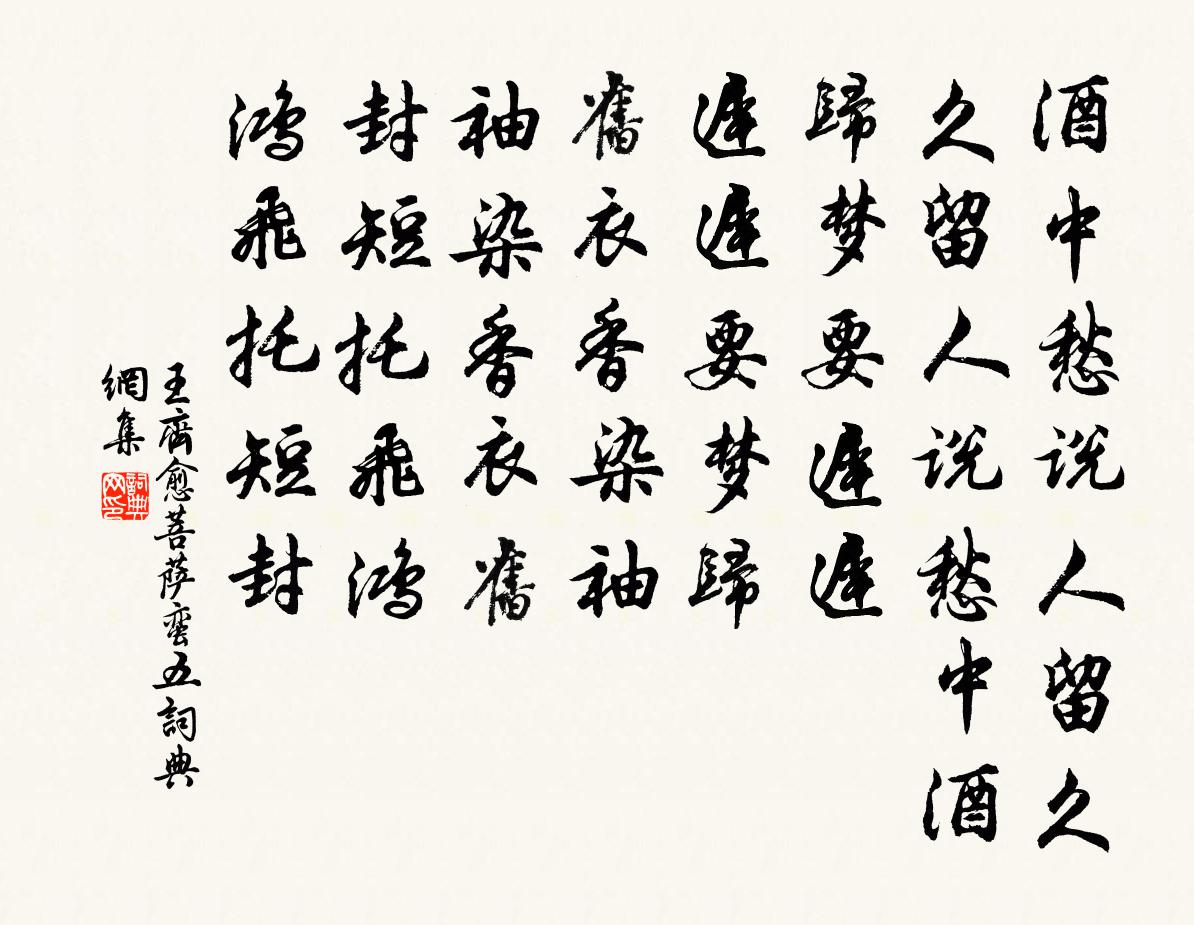 酒中愁说人留久
久留人说愁中酒
歸梦要遲遲
遲遲要梦歸
舊衣香染袖
袖染香衣舊
封短托飛鸿
鸿飛托短封
王齊愈菩萨蛮五詞典
網集
詞典
网印